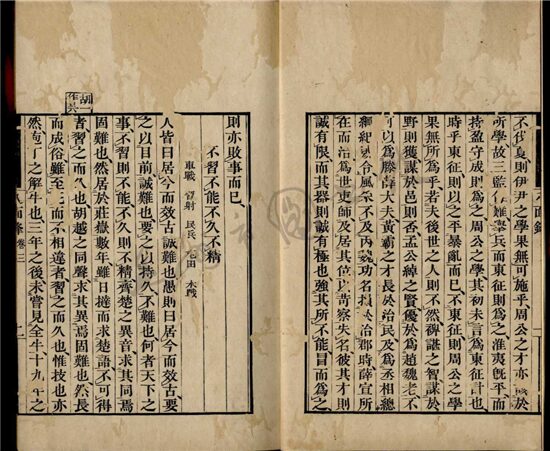 不伐夏則伊尹之學果無可施乎周公之才亦
所學故三監作難舉兵而東征則為之淮夷旣平而
持盈守成則為之周公之學其初未言為東征計也
時乎東征則以之平暴亂而已不東征則周公之學
果無所為乎若夫後世之人則不然裨諶之智謀於
野則獲謀於邑則否孟公綽之賢優於為趙魏老不
可以為滕薛大夫黃霸之才長於治民及為丞相總
綱紀號令風采不及丙魏功名損於治郡時薛宣所
在而治為世吏師及居其位以苛察失名彼其才則
誠有限而其器則誠有極也強其所不能冒而為之
則亦敗事而已
不習不能不久不精
車戰 習射 民兵 屯田 水戰
人皆曰居今而效古誠難也愚則曰居今而效古要
之以目前誠難也要之以持久不難也何者天下之
事不習則不能不久則不精齊楚之異音求其同焉
固難也然居於莊嶽數年雖日撻而求楚語不可得
者習之而久也胡越之同聲求其異焉固難也然長
而成俗雖至死而不相違者習之而久也惟技也亦
然庖丁之解牛也三年之後未嘗見全牛十九年之
胡一作共
八面鋒卷三